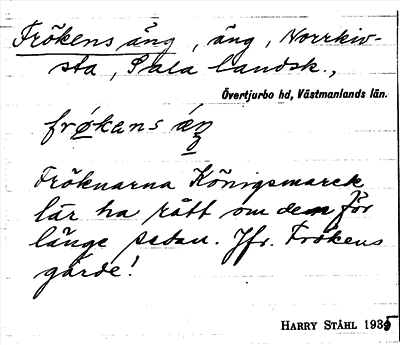 Frökens äng, äng, Norrkiv-
sta, Sala landsk.,
Övertjurbo hd, Västmanlands län.
frøkans äŋ
Fröknarna Königsmarck
lär ha rått om dem för
länge sedan. Jfr. Frökens
gärde!
HARRY STÅHL 1935